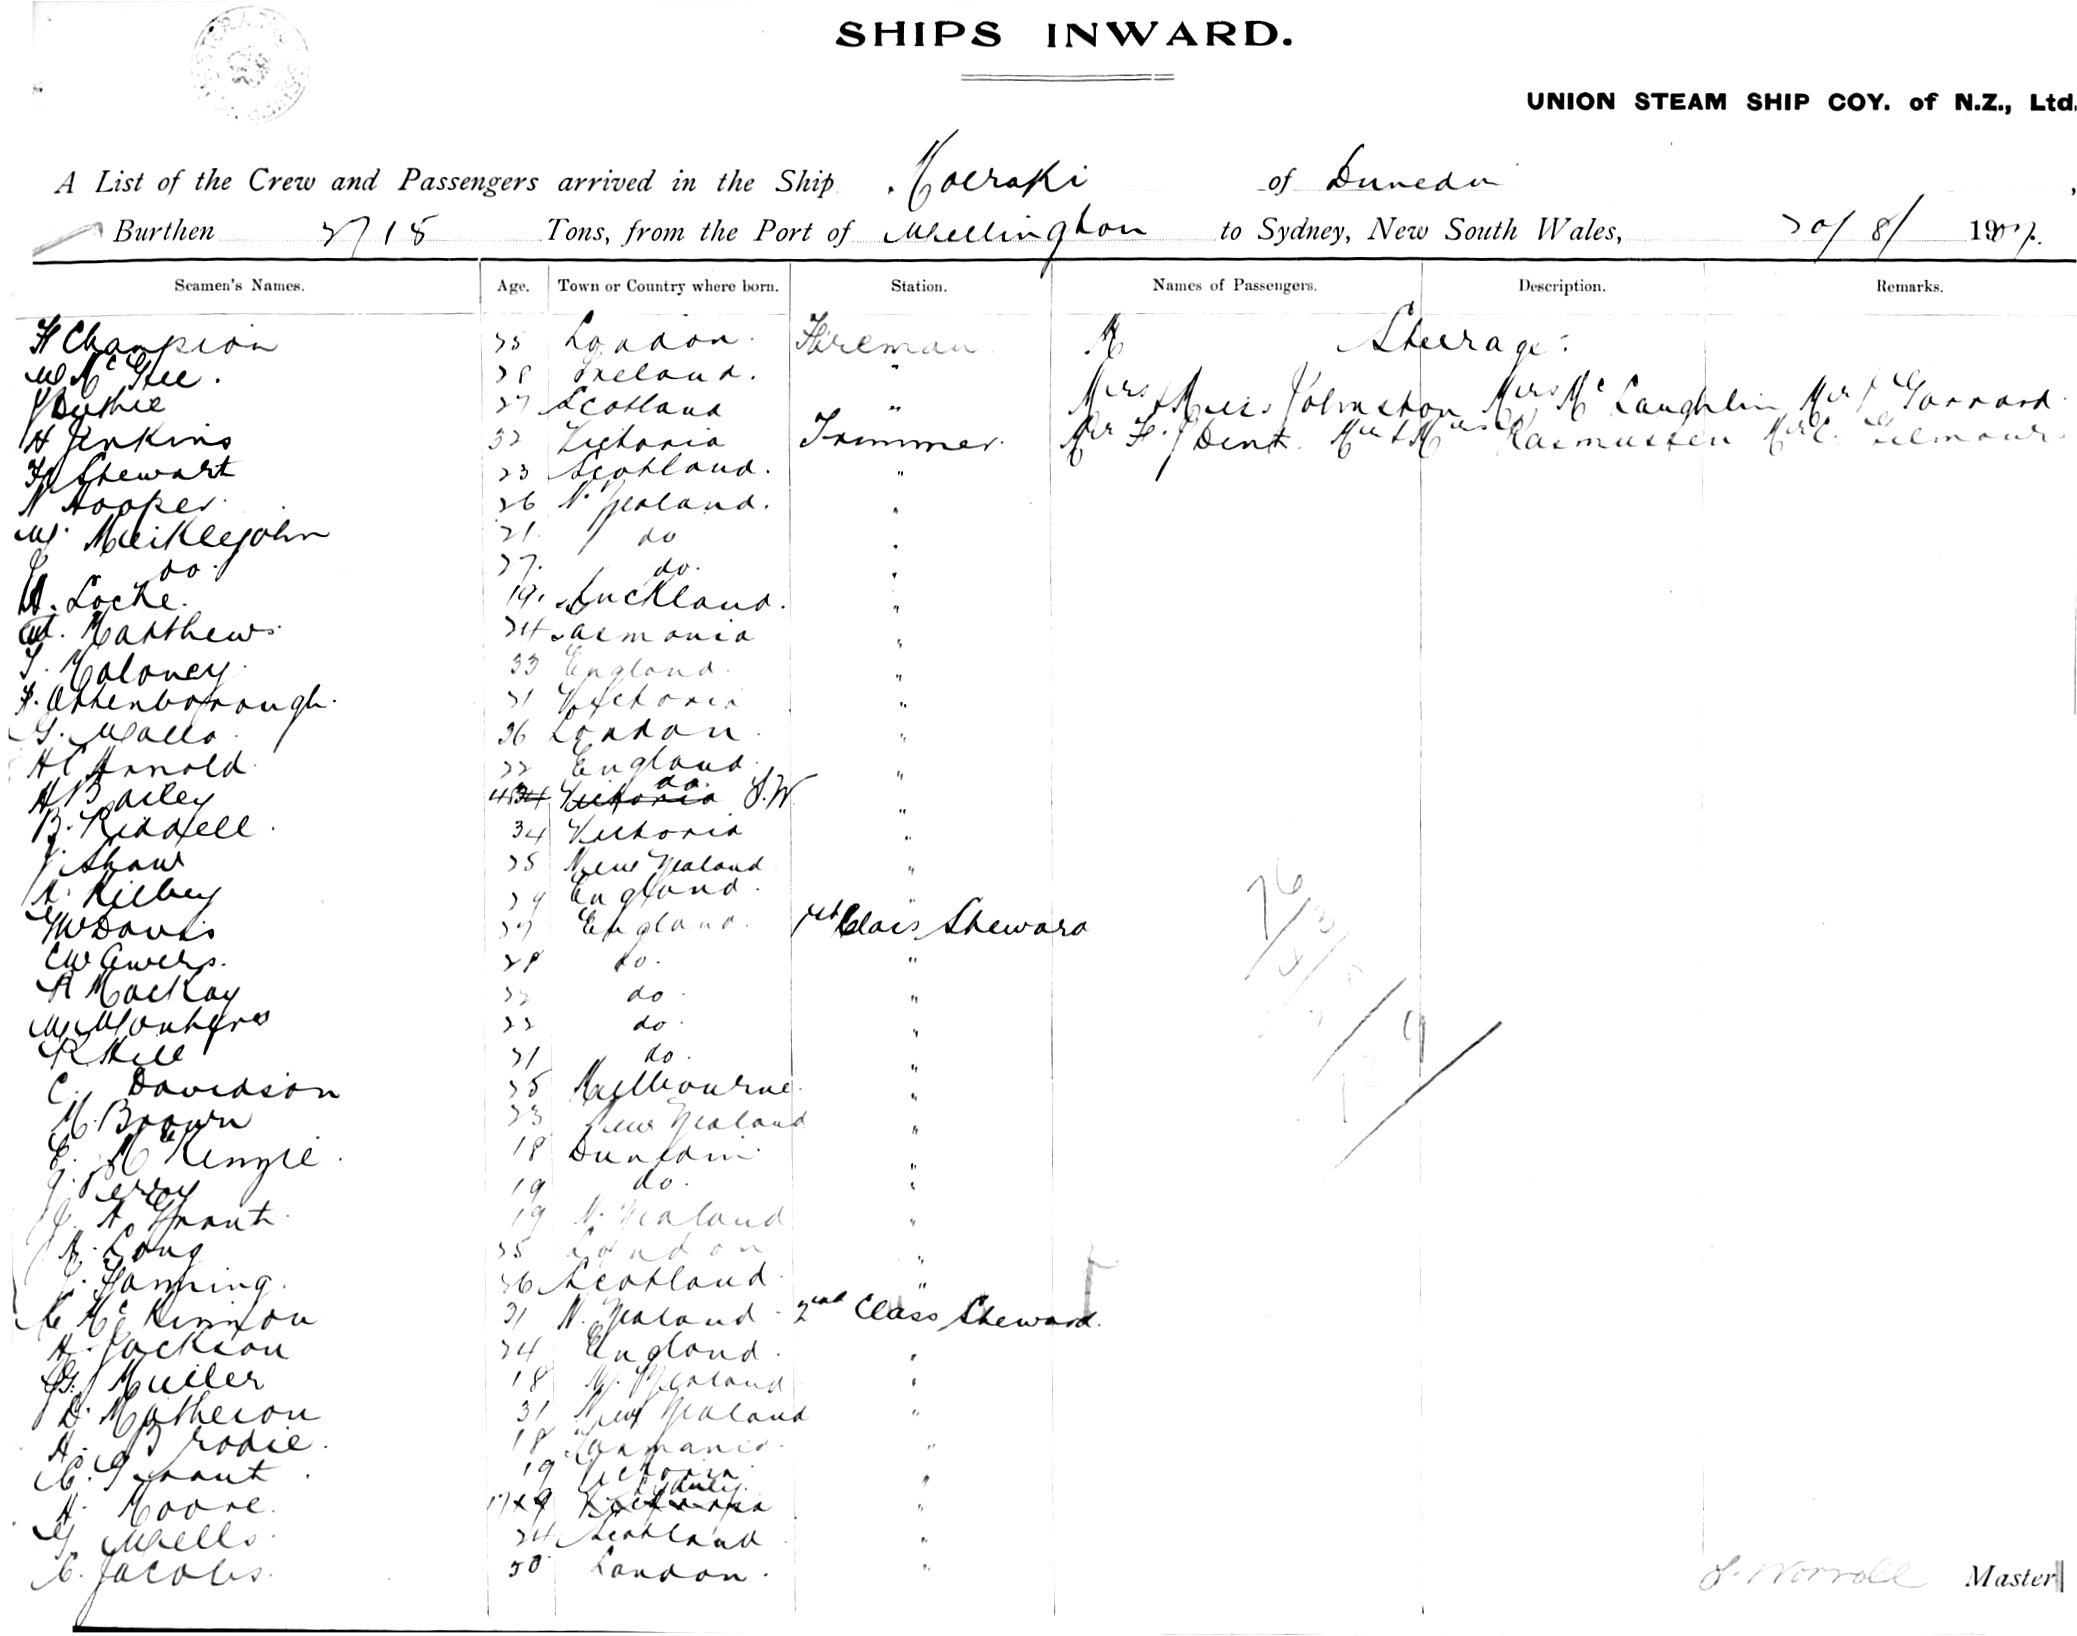 SHIPS INWARD.
UNION STEAM SHIP COY. of N.Z., Ltd.
A List of the Crew and Passengers arrived in the Ship Moeraki of Dunedin,
Burthen 2715 Tons, from the Port of Wellington to Sydney, New South Wales, 20/8/1907.
Seamen's Names. Age. Town or Country where born. Station. Names of Passengers. Description. Remarks.
H Champion 25 London. Fireman Steerage:
W McGee. 28 Ireland. "
J Duthie 27 Scotland " Mrs & Miss Johnston Mrs McLaughlin Mr J Garrard.
H Jenkins 32 Victoria Trimmer. Mr F. J Dent. Mr & Mrs Rasmussen Mr C. Gilmour.
Stewart 23 Scotland. "
N Hooper. 26 N. Zealand. "
W. Meiklejohn 21. do "
do. 27. do. "
A. Locke. 19. Auckland. "
Matthews. 24 Tasmania "
T. Moloney. 33 England. "
F. Attenborough. 21 Victoria "
G. Walls. 26 London. "
H C Arnold. 22 England. "
H Bailey do. "
B. Riddell. 34 Victoria "
J Shaw 25 New Zealand "
A. Kilbey 29 England. "
Davis 27 England. 1st Class Steward
C W Awers. 28 do. "
R Mackay 22 do. "
22 do. "
R Hill 21 do. "
C. Davidson 25 Melbourne. "
M. Brown 23 New Zealand "
E. McKenzie. 18 Dunedin "
J. Perroy 19 do. "
J. A Grant. 19 N. Zealand "
A. Long 25 London "
J. Fanning. 26 Scotland "
C McKinnon 31 N. Zealand 2nd Class Steward.
H. Jackson 24 England. "
G. Miller 18 N. Zealand "
D. Matheson 31 New Zealand "
H. Brodie. 18 Tasmania. "
C. Grant. 19 Victoria. "
H. Moore. 17 Sydney. "
G. Wells. 24 Scotland "
C. Jacobs. 50 London. "
Worrall Master